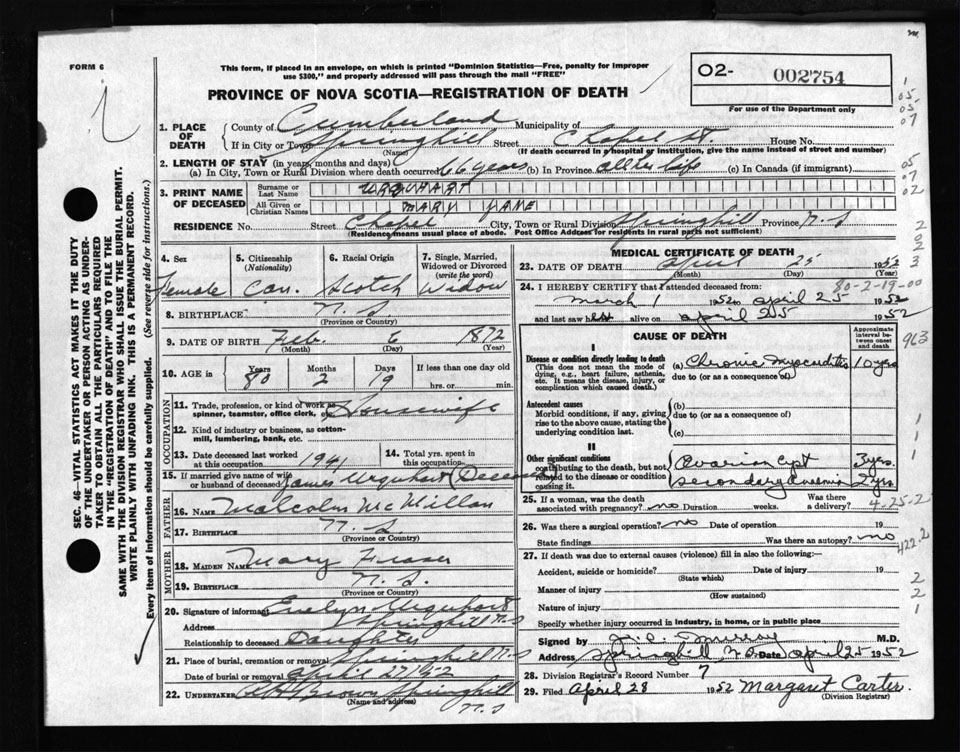 FORM 6
This form, if placed in an envelope, on which is printed "Dominion Statistics—Free, penalty for improper
use $300," and properly addressed will pass through the mail "FREE"
PROVINCE OF NOVA SCOTIA—REGISTRATION OF DEATH
02- 002754
For use of the Department only
1. PLACE OF DEATH
County of Cumberland Municipality of
If in City or Town Springhill Street Chapel St. House No.
(Name) (If death occurred in hospital or institution, give the name instead of street and number)
2. LENGTH OF STAY (in years, months and days)
(a) In City, Town or Rural Division where death occurred 66 years (b) In Province all her life (c) In Canada (if immigrant)
3. PRINT NAME OF DECEASED
Surname or Last Name URQUHART
All Given or Christian Names MARY JANE
RESIDENCE No. Street Chapel City, Town or Rural Division Springhill Province N.S
(Residence means usual place of abode. Post Office Address for residents in rural parts not sufficient)
4. Sex Female
5. Citizenship (Nationality) Can.
6. Racial Origin Scotch
7. Single, Married, Widowed or Divorced (write the word) Widow
8. BIRTHPLACE N.S.
(Province or Country)
9. DATE OF BIRTH Feb. 6 1872
(Month) (Day) (Year)
10. AGE in Years 80 Months 2 Days 19 If less than one day old
hrs. or min.
OCCUPATION
11. Trade, profession, or kind of work as spinner, teamster, office clerk, etc. Housewife
12. Kind of industry or business, as cotton-mill, lumbering, bank, etc.
13. Date deceased last worked at this occupation 1941
14. Total yrs. spent in this occupation
15. If married give name of wife or husband of deceased James Urquhart (Deceased)
FATHER
16. NAME Malcolm McMillan
17. BIRTHPLACE N.S
(Province or Country)
MOTHER
18. MAIDEN NAME Mary Fraser
19. BIRTHPLACE N.S.
(Province or Country)
20. Signature of informant Evelyn Urquhart
Address Springhill N.S
Relationship to deceased Daughter
21. Place of burial, cremation or removal Springhill N.S
Date of burial or removal April 27/52
22. UNDERTAKER Brown Springhill
(Name and address) N.S
MEDICAL CERTIFICATE OF DEATH
23. DATE OF DEATH April 25 1952
(Month) (Day) (Year)
80-2-19-00
24. I HEREBY CERTIFY that I attended deceased from:
March 1 1952 to April 25 1952
and last saw her alive on April 25 1952
CAUSE OF DEATH
Approximate interval between onset and death
I
Disease or condition directly leading to death
(This does not mean the mode of dying, e.g., heart failure, asthenia, etc. It means the disease, injury, or complication which caused death.)
(a) Chronic Myocarditis 10 yrs
due to (or as a consequence of)
Antecedent causes
Morbid conditions, if any, giving rise to the above cause, stating the underlying condition last.
(b)
due to (or as a consequence of)
(c)
II
Other significant conditions
contributing to the death, but not related to the disease or condition causing it.
Ovarian Cyst 3 yrs.
Secondary Anemia 2 yrs
25. If a woman, was the death associated with pregnancy? no Duration weeks. Was there a delivery?
4-25-2
26. Was there a surgical operation? no Date of operation 19
State findings Was there an autopsy? no
422.2
27. If death was due to external causes (violence) fill in also the following:—
Accident, suicide or homicide? Date of injury 19
(State which)
Manner of injury
(How sustained)
Nature of injury
Specify whether injury occurred in industry, in home, or in public place
Signed by Murray M.D.
Address Springhill, N.S. Date April 25 1952
28. Division Registrar's Record Number 7
29. Filed April 28 1952 Margaret Carter.
(Division Registrar)
SEC. 46—VITAL STATISTICS ACT MAKES IT THE DUTY
OF THE UNDERTAKER OR PERSON ACTING AS UNDER-
TAKER TO OBTAIN ALL THE PARTICULARS REQUIRED
IN THE "REGISTRATION OF DEATH" AND TO FILE THE
SAME WITH THE DIVISION REGISTRAR WHO SHALL ISSUE THE BURIAL PERMIT.
WRITE PLAINLY WITH UNFADING INK. THIS IS A PERMANENT RECORD.
Every item of information should be carefully supplied. (See reverse side for instructions.)
1
05
05
07
05
07
02
2
3
3
963
1
1
1
2
2
1